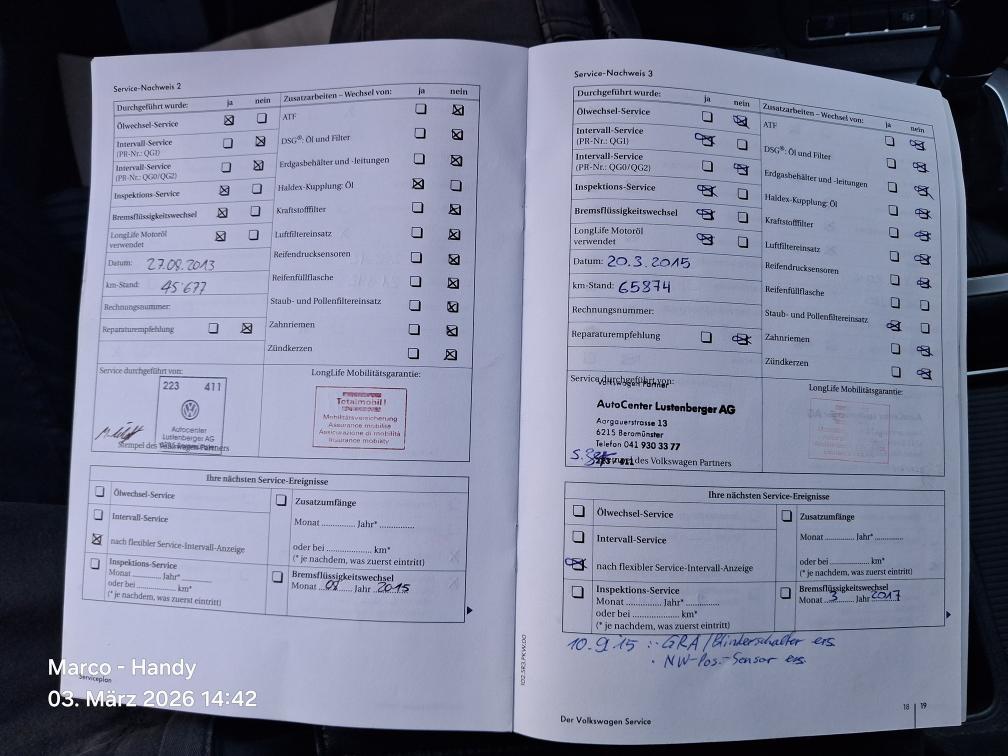 Service-Nachweis 2
Durchgeführt wurde: ja nein
Ölwechsel-Service
Intervall-Service
(PR-Nr.: QG1)
Intervall-Service
(PR-Nr.: QG0/QG2)
Inspektions-Service
Bremsflüssigkeitswechsel
LongLife Motoröl
verwendet
Datum: 27.08.2013
km-Stand: 45'677
Rechnungsnummer:
Reparaturempfehlung
Zusatzarbeiten – Wechsel von: ja nein
ATF
DSG®: Öl und Filter
Erdgasbehälter und -leitungen
Haldex-Kupplung: Öl
Kraftstofffilter
Luftfiltereinsatz
Reifendrucksensoren
Reifenfüllflasche
Staub- und Pollenfiltereinsatz
Zahnriemen
Zündkerzen
Service durchgeführt von:
223 411
Autocenter
Lustenberger AG
Stempel des Volkswagen Partners
LongLife Mobilitätsgarantie:
Totalmobil!
Mobilitätsversicherung
Assurance mobilité
Assicurazione di mobilità
Insurance mobility
Ihre nächsten Service-Ereignisse
Ölwechsel-Service
Intervall-Service
nach flexibler Service-Intervall-Anzeige
Inspektions-Service
Monat ............ Jahr* ............
oder bei ............ km*
(* je nachdem, was zuerst eintritt)
Zusatzumfänge
Monat ............ Jahr* ............
oder bei ............ km*
(* je nachdem, was zuerst eintritt)
Bremsflüssigkeitswechsel
Monat 08 Jahr 2015
Serviceplan
Service-Nachweis 3
Durchgeführt wurde: ja nein
Ölwechsel-Service
Intervall-Service
(PR-Nr.: QG1)
Intervall-Service
(PR-Nr.: QG0/QG2)
Inspektions-Service
Bremsflüssigkeitswechsel
LongLife Motoröl
verwendet
Datum: 20.3.2015
km-Stand: 65874
Rechnungsnummer:
Reparaturempfehlung
Zusatzarbeiten – Wechsel von: ja nein
ATF
DSG®: Öl und Filter
Erdgasbehälter und -leitungen
Haldex-Kupplung: Öl
Kraftstofffilter
Luftfiltereinsatz
Reifendrucksensoren
Reifenfüllflasche
Staub- und Pollenfiltereinsatz
Zahnriemen
Zündkerzen
Service durchgeführt von:
Volkswagen Partner
AutoCenter Lustenberger AG
Aargauerstrasse 13
6215 Beromünster
Telefon 041 930 33 77
Stempel des Volkswagen Partners
LongLife Mobilitätsgarantie:
Ihre nächsten Service-Ereignisse
Ölwechsel-Service
Intervall-Service
nach flexibler Service-Intervall-Anzeige
Inspektions-Service
Monat ............ Jahr* ............
oder bei ............ km*
(* je nachdem, was zuerst eintritt)
Zusatzumfänge
Monat ............ Jahr* ............
oder bei ............ km*
(* je nachdem, was zuerst eintritt)
Bremsflüssigkeitswechsel
Monat 3 Jahr 2017
10.9.15 : · GRA/Blinkerschalter ers.
· NW-Pos.-Sensor ers.
102.5R3.PKW.00
Der Volkswagen Service
18 | 19
Marco - Handy
03. März 2026 14:42